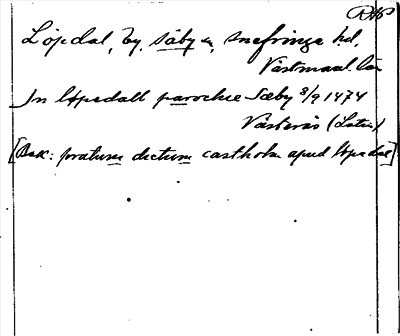 RAP
Löpdal, by, Säby sn, Snefringe hd,
Västmanl. län
In löpedall parochie Sæby 8/9 1474
Västerås (Latin)
[Bak: pratum dictum castholm apud löpedal]